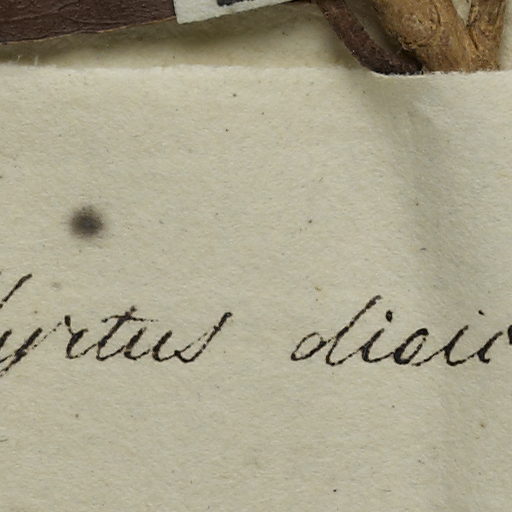 Myrtus dioic